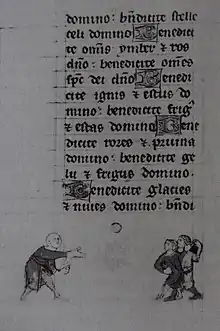 domino: bñdicite stelle
celi domino Bened
icite om̃s ymber & ros
dño: benedicite om̃es
sp̃c dei dño Benedi
cite ignis & estus do
mino: benedicite frig᷒
& estas domino Bene
dicite rores & pruina
domino: benedicite ge
lu & frigus domino.
Benedicite glacies
& niues domino: bñdi